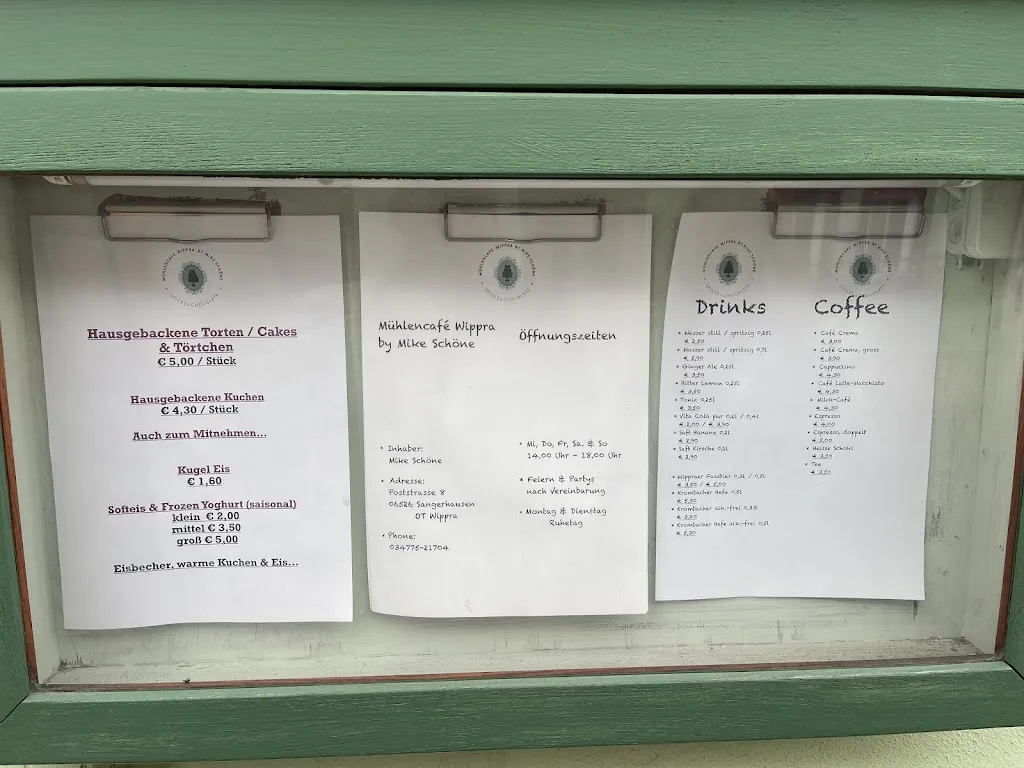 MÜHLENCAFÉ WIPPRA BY MIKE SCHÖNE
Hausgebackene Torten / Cakes
& Törtchen
€ 5,00 / Stück
Hausgebackene Kuchen
€ 4,30 / Stück
Auch zum Mitnehmen...
Kugel Eis
€ 1,60
Softeis & Frozen Yoghurt (saisonal)
klein € 2,00
mittel € 3,50
groß € 5,00
Eisbecher, warme Kuchen & Eis...
MÜHLENCAFÉ WIPPRA BY MIKE SCHÖNE
Mühlencafé Wippra
by Mike Schöne
• Inhaber:
Mike Schöne
• Adresse:
Poststrasse 8
06526 Sangerhausen
OT Wippra
• Phone:
034775-21704
Öffnungszeiten
• Mi, Do, Fr, Sa. & So
14.00 Uhr - 18.00 Uhr
• Feiern & Partys
nach Vereinbarung
• Montag & Dienstag
Ruhetag
MÜHLENCAFÉ WIPPRA BY MIKE SCHÖNE
Drinks
• Wasser still / spritzig 0,25l
€ 2,50
• Wasser still / spritzig 0,7l
€ 5,90
• Ginger Ale 0,25l
€ 3,50
• Bitter Lemon 0,25l
€ 3,50
• Tonic 0,25l
€ 3,50
• Vita Cola pur 0,2l / 0,4l
€ 2,00 / € 3,90
• Saft Banane 0,2l
€ 2,90
• Saft Kirsche 0,2l
€ 2,90
• Wippraer Fassbier 0,3l / 0,5l
€ 3,50 / € 5,00
• Krombacher Hefe 0,5l
€ 5,30
• Krombacher alk.-frei 0,33l
• Krombacher Hefe alk.-frei 0,5l
€ 5,30
MÜHLENCAFÉ WIPPRA BY MIKE SCHÖNE
Coffee
• Café Crema
€ 3,00
• Café Crema, gross
€ 3,90
• Cappuccino
€ 4,30
• Café Latte-Macchiato
€ 4,30
• Milch-Café
€ 4,30
• Espresso
• Espresso, doppelt
€ 5,00
• Heisse Schoki
€ 3,50
• Tee
€ 3,50